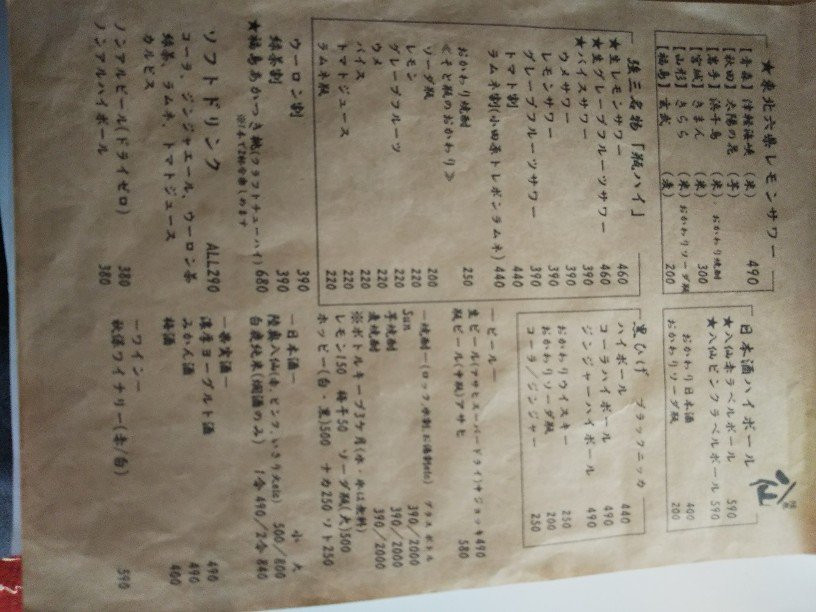 ★東北六県レモンサワー 490
【青森】津軽海峡 (米)
【秋田】太陽の花 (芋)
【岩手】浜千鳥 (米) おかわり焼酎
【宮城】きまん (米) 300
【山形】きらら (米) おかわりソーダ瓶
【福島】玄武 (麦) 200
強三名物「瓶ハイ」
★生レモンサワー 460
★生グレープフルーツサワー 460
★バイスサワー 390
ウメサワー 390
レモンサワー 390
グレープフルーツサワー 390
トマト割 440
ラムネ割(小田原トレボンラムネ) 440
おかわり焼酎 250
≪そと瓶のおかわり≫
ソーダ瓶 200
レモン 220
グレープフルーツ 220
ウメ 220
バイス 220
トマトジュース 220
ラムネ瓶 220
ウーロン割 390
緑茶割 390
★福島あかつき桃(クラフトチューハイ) 680
※1本で2杯分楽しめます
ソフトドリンク ALL290
コーラ、ジンジャエール、ウーロン茶
緑茶、ラムネ、トマトジュース
カルピス
ノンアルビール(ドライゼロ) 380
ノンアルハイボール 380
八仙
日本酒ハイボール
★八仙赤ラベルボール 590
★八仙ピンクラベルボール 590
おかわり日本酒 400
おかわりソーダ瓶 200
黒ひげ ブラックニッカ
ハイボール 440
コーラハイボール 490
ジンジャーハイボール 490
おかわりウイスキー 250
おかわりソーダ瓶 200
コーラ/ジンジャー 250
―ビール―
生ビール(アサヒスーパードライ)中ジョッキ 490
瓶ビール(中瓶)アサヒ 580
―焼酎―(ロック、水割、お湯割etc) グラス ボトル
Sun 390/2000
芋焼酎 390/2000
麦焼酎 390/2000
※ボトルキープ3ケ月(水・氷は無料)
レモン150 梅干50 ソーダ瓶(大)500
ホッピー(白・黒)500 ナカ250 ソト250
―日本酒― 小 大
陸奥八仙(赤、ピンク、いさり火etc) 500/800
白鹿純米(燗酒のみ) 1合490/2合840
―果実酒―
濃厚ヨーグルト酒 490
みかん酒 490
梅酒 400
―ワイン―
秋保ワイナリー(赤/白) 590